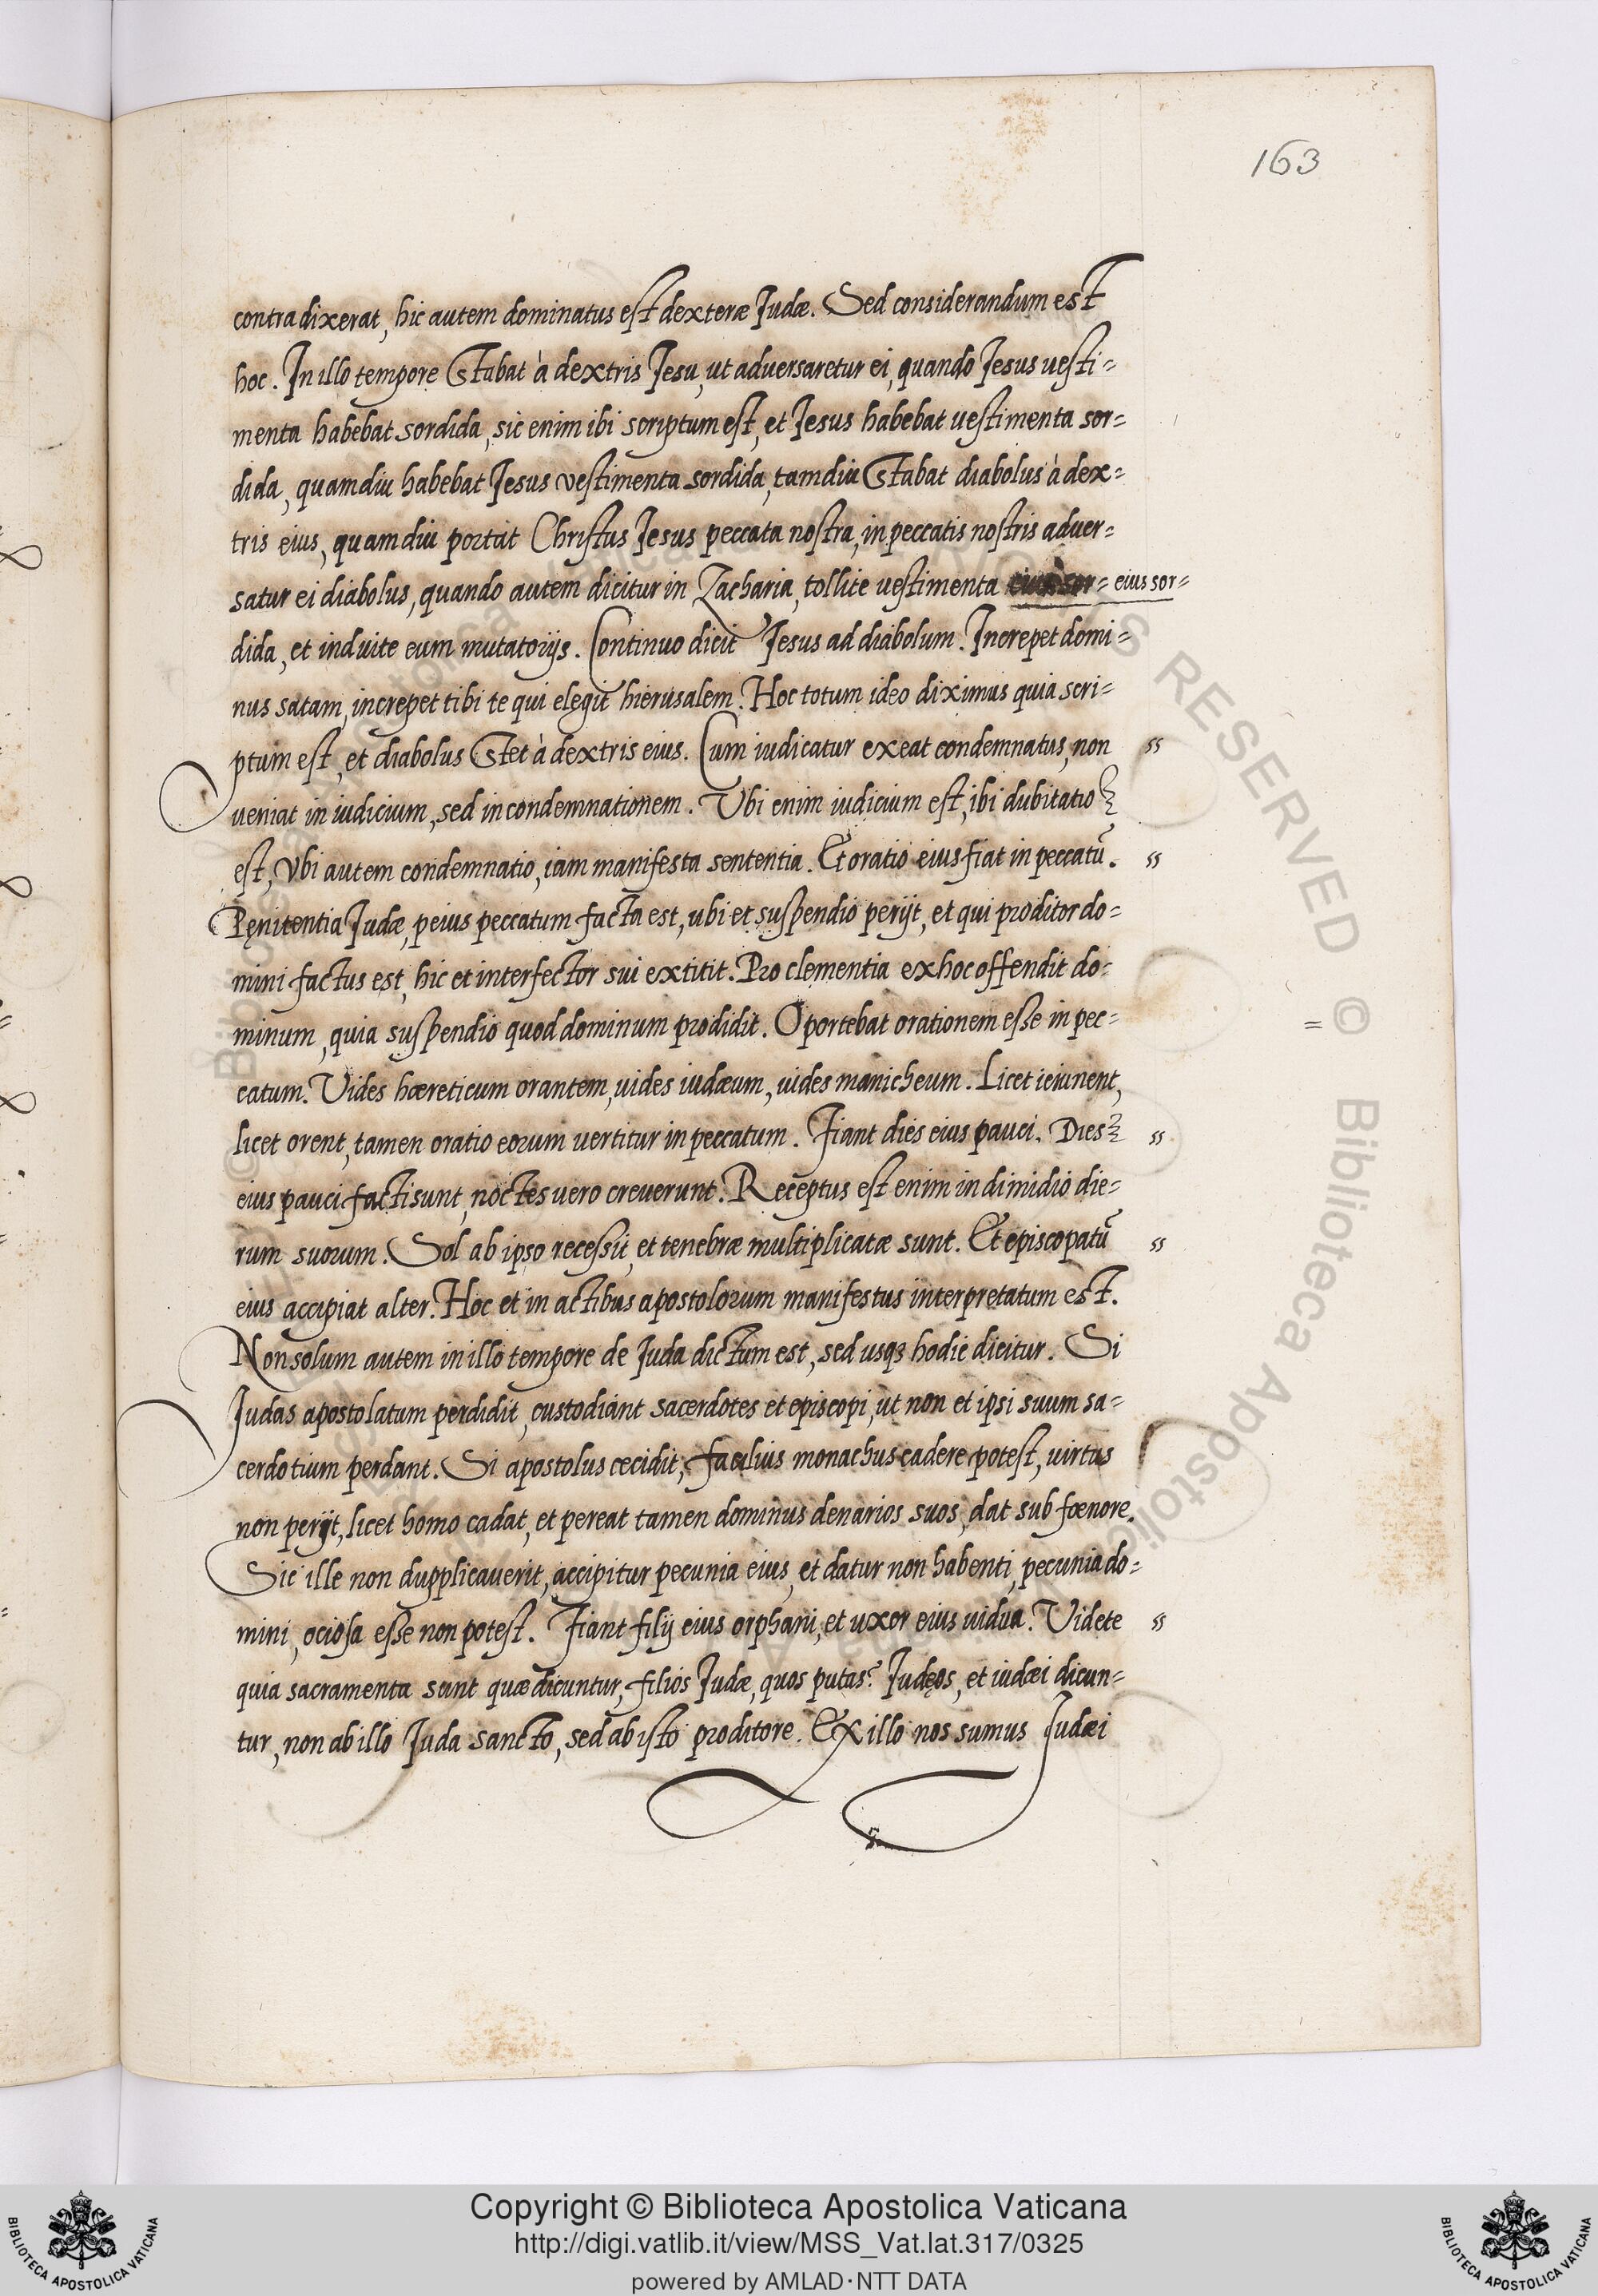 163
contradixerat, hic autem dominatus est dexteræ Judæ. Sed considerandum est
hoc. In illo tempore Stabat à dextris Jesu, ut adversaretur ei, quando Jesus uesti=
menta habebat sordida, sic enim ibi scriptum est, et Jesus habebat uestimenta sor=
dida, quamdiu habebat Jesus vestimenta sordida, tamdiu Stabat diabolus à dex=
tris eius, quamdiu portat Christus Jesus peccata nostra, in peccatis nostris aduer=
satur ei diabolus, quando autem dicitur in Zacharia, tollite uestimenta eius sor= eius sor=
dida, et induite eum mutatorijs. Continuo dicit Jesus ad diabolum. Increpet domi=
nus satam, increpet tibi te qui elegit hierusalem. Hoc totum ideo diximus quia scri=
ptum est, et diabolus Stet à dextris eius. Cum iudicatur exeat condemnatus, non ss
ueniat in iudicium, sed in condemnationem. Vbi enim iudicium est, ibi dubitatio
est, Vbi autem condemnatio, iam manifesta sententia. Et oratio eius fiat in peccatū. ss
Pęnitentia Judæ, peius peccatum facta est, ubi et suspendio perijt, et qui proditor do=
mini factus est, hic et interfector sui extitit. Pro clementia ex hoc offendit do=
minum, quia suspendio quod dominum prodidit. Oportebat orationem esse in pec=
catum. Vides hæreticum orantem, uides iudæum, uides manicheum. Licet ieiunent,
licet orent, tamen oratio eorum uertitur in peccatum. Fiant dies eius pauci. Dies ss
eius pauci facti sunt, noctes uero creuerunt. Receptus est enim in dimidio die=
rum suorum. Sol ab ipso recessit, et tenebræ multiplicatæ sunt. Et episcopatū ss
eius accipiat alter. Hoc et in actibus apostolorum manifestus interpretatum est.
Non solum autem in illo tempore de Juda dictum est, sed usqȝ hodie dicitur. Si
Judas apostolatum perdidit, custodiant sacerdotes et episcopi, ut non et ipsi suum sa=
cerdotium perdant. Si apostolus cecidit, facilius monachus cadere potest, virtus
non perijt, licet homo cadat, et pereat tamen dominus denarios suos, dat sub fœnore.
Sic ille non dupplicauerit, accipitur pecunia eius, et datur non habenti, pecunia do=
mini, ociosa esse non potest. Fiant filij eius orphani, et uxor eius uidua. Videte ss
quia sacramenta sunt quæ dicuntur, filios Judæ, quos putas? Judęos, et iudæi dicun=
tur, non ab illo Juda sancto, sed ab isto proditore. Ex illo nos sumus Judæi
Copyright © Biblioteca Apostolica Vaticana
http://digi.vatlib.it/view/MSS_Vat.lat.317/0325
powered by AMLAD·NTT DATA
BIBLIOTECA APOSTOLICA VATICANA
BIBLIOTECA APOSTOLICA VATICANA